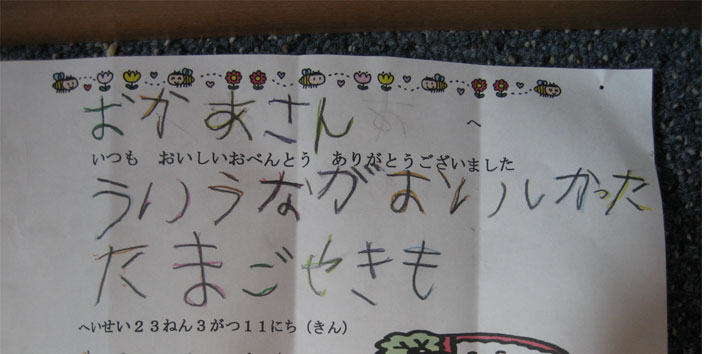 おかあさん　へ
いつも　おいしいおべんとう　ありがとうございました
ういうながおいしかった
たまごやきも
へいせい２３ねん３がつ１１にち（きん）